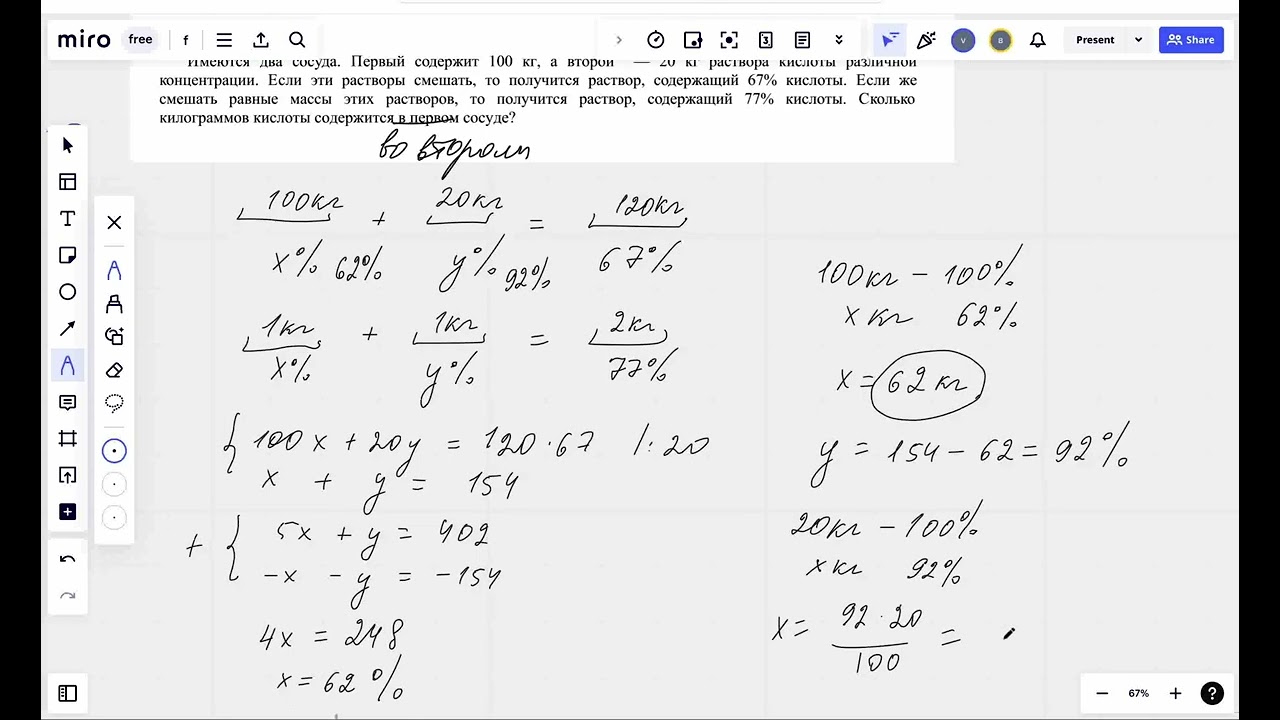 miro free f Present Share
Имеются два сосуда. Первый содержит 100 кг, а второй — 20 кг раствора кислоты различной
концентрации. Если эти растворы смешать, то получится раствор, содержащий 67% кислоты. Если же
смешать равные массы этих растворов, то получится раствор, содержащий 77% кислоты. Сколько
килограммов кислоты содержится в первом сосуде?
во втором
100кг + 20кг = 120кг
x% 62% y% 92% 67%
1кг + 1кг = 2кг
x% y% 77%
{ 100x + 20y = 120·67 |:20
x + y = 154
+ { 5x + y = 402
-x - y = -154
4x = 248
x = 62%
100кг - 100%
x кг 62%
x = 62 кг
y = 154 - 62 = 92%
20кг - 100%
x кг 92%
x = 92·20
100 =
67%